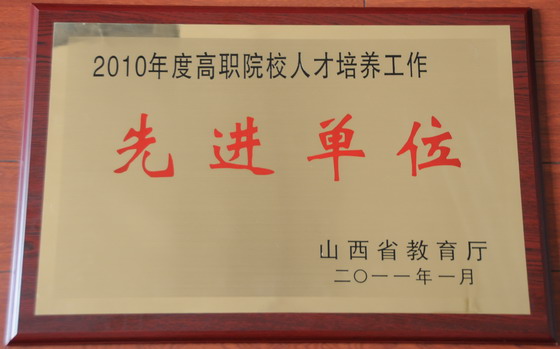 2010年度高职院校人才培养工作
先进单位
山西省教育厅
二〇一一年一月